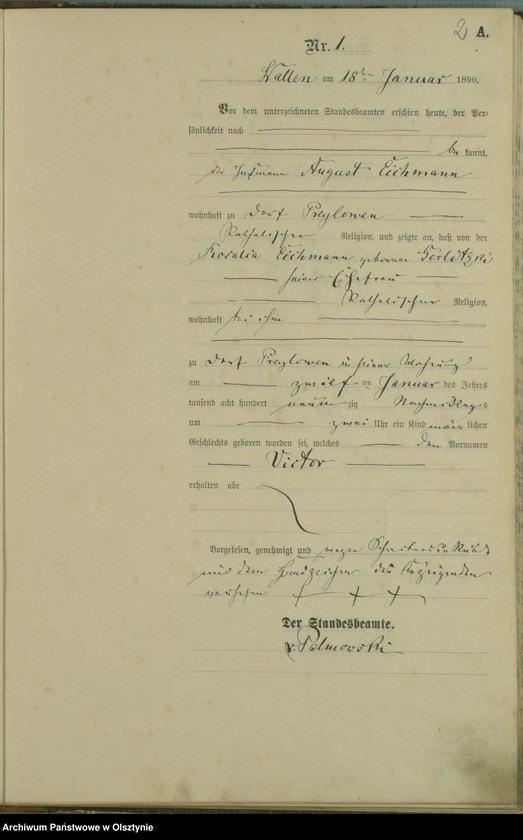 2 A.
Nr. 1.
Wallen am 18ten Januar 1890.
Vor dem unterzeichneten Standesbeamten erschien heute, der Per-
sönlichkeit nach
be kannt,
der Instmann August Eichmann
wohnhaft zu Dorf Preylowen
Katholischer Religion, und zeigte an, daß von der
Rosalia Eichmann geborenen Gerlitzki
seiner Ehefrau
Katholischer Religion,
wohnhaft bei ihm
zu Dorf Preylowen in seiner Wohnung
am zwölf ten Januar des Jahres
tausend acht hundert neun zig Nachmittags
um zwei Uhr ein Kind männ lichen
Geschlechts geboren worden sei, welches den Vornamen
Victor
erhalten abe
Vorgelesen, genehmigt und wegen Schreibensunkunde
mit dem Handzeichen des Anzeigenden
versehen + + +
Der Standesbeamte.
v. Palmowski
Archiwum Państwowe w Olsztynie